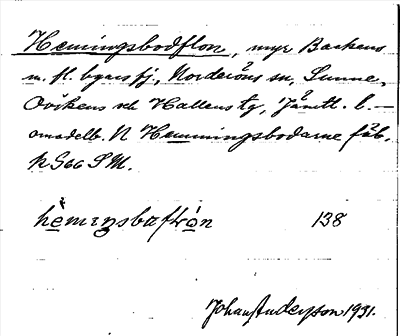 Hemingsbodflon, myr Backens
m. fl. byars fj., Norderöns sn, Sunne,
Ovikens och Hallens tg, Jämtl. l. —
omedelb. N Hemmingsbodarne fäb.
k S66 SM.
hèmıŋsbaflròn 138
Johan Andersson 1931.